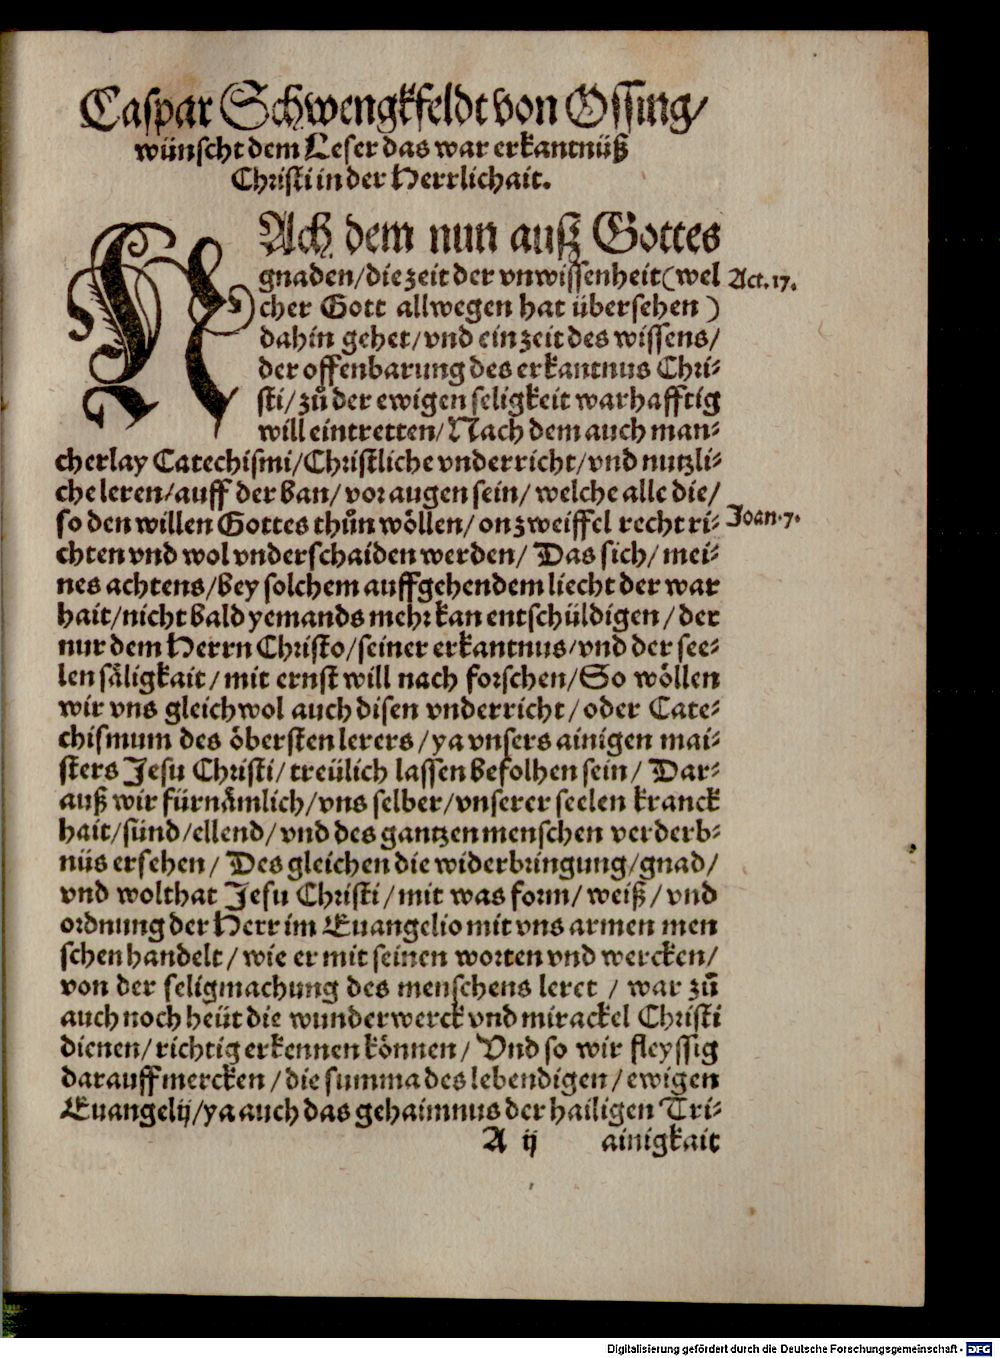 Caspar Schwengkfeldt von Ossing/
wünscht dem Leser das war erkantnüß
Christi in der Herrlichait.
NAch dem nun auß Gottes
gnaden/die zeit der vnwissenheit (wel Act. 17.
cher Gott allwegen hat übersehen )
dahin gehet/vnd ein zeit des wissens/
der offenbarung des erkantnus Chri⸗
sti/zů der ewigen seligkeit warhafftig
will eintretten/Nach dem auch man⸗
cherlay Catechismi/Christliche vnderricht/vnd nutzli⸗
che leren/auff der ban/vor augen sein/welche alle die/
so den willen Gottes thůn wöllen/on zweiffel recht ri⸗ Joan. 7.
chten vnd wol vnderschaiden werden/ Das sich/mei⸗
nes achtens/bey solchem auffgehendem liecht der war
hait/nicht bald yemands mehr kan entschüldigen/der
nur dem Herrn Christo/seiner erkantnus/vnd der see⸗
len säligkait/mit ernst will nach forschen/So wöllen
wir vns gleichwol auch disen vnderricht/oder Cate⸗
chismum des öbersten lerers/ya vnsers ainigen mai⸗
sters Jesu Christi/treülich lassen befolhen sein/ Dar⸗
auß wir fürnämlich/vns selber/vnserer seelen kranck
hait/sünd/ellend/vnd des gantzen menschen verderb⸗
nüs ersehen/ Des gleichen die widerbringung/gnad/
vnd wolthat Jesu Christi/mit was form/weiß/vnd
ordnung der Herr im Euangelio mit vns armen men
schen handelt/wie er mit seinen worten vnd wercken/
von der seligmachung des menschens leret / war zů
auch noch heüt die wunderwerck vnd mirackel Christi
dienen/richtig erkennen können/ Vnd so wir fleyssig
darauff mercken/die summa des lebendigen/ewigen
Euangelij/ya auch das gehaimnus der hailigen Tri⸗
A ij ainigkait
Digitalisierung gefördert durch die Deutsche Forschungsgemeinschaft - DFG